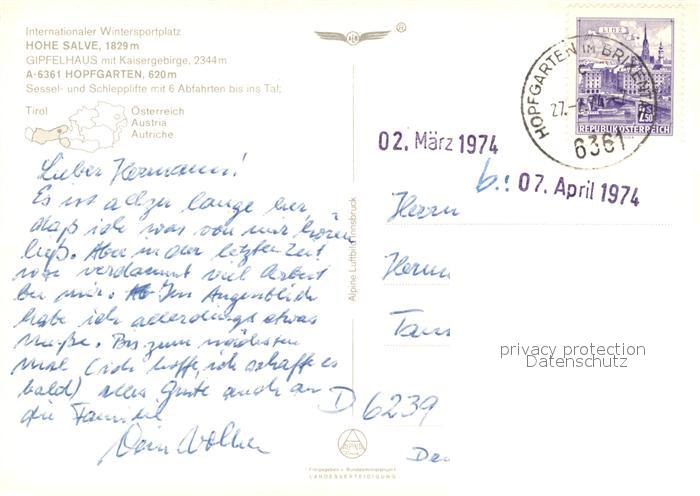 Internationaler Wintersportplatz
HOHE SALVE, 1829 m
GIPFELHAUS mit Kaisergebirge, 2344 m
A-6361 HOPFGARTEN, 620 m
Sessel- und Schlepplifte mit 6 Abfahrten bis ins Tal;
Tirol
Österreich
Austria
Autriche
Lieber Hermann!
Es ist allzu lange her,
daß ich was von mir hören
ließ. Aber in der letzten Zeit
war verdammt viel Arbeit
bei mir. Im Augenblick
habe ich allerdings etwas
Muße. Bis zum nächsten
Mal (ich hoffe, ich schaffe es
bald) alles Gute auch an
die Familie
Dein Volker
Alpine Luftbild Innsbruck
LINZ
2.50
REPUBLIK ÖSTERREICH
HOPFGARTEN IM BRIXENTAL
6361
02. März 1974
b.: 07. April 1974
Herrn
Tans
privacy protection
Datenschutz
D 6239
ALPINE
Freigegeben v. Bundesministerium f.
LANDESVERTEIDIGUNG